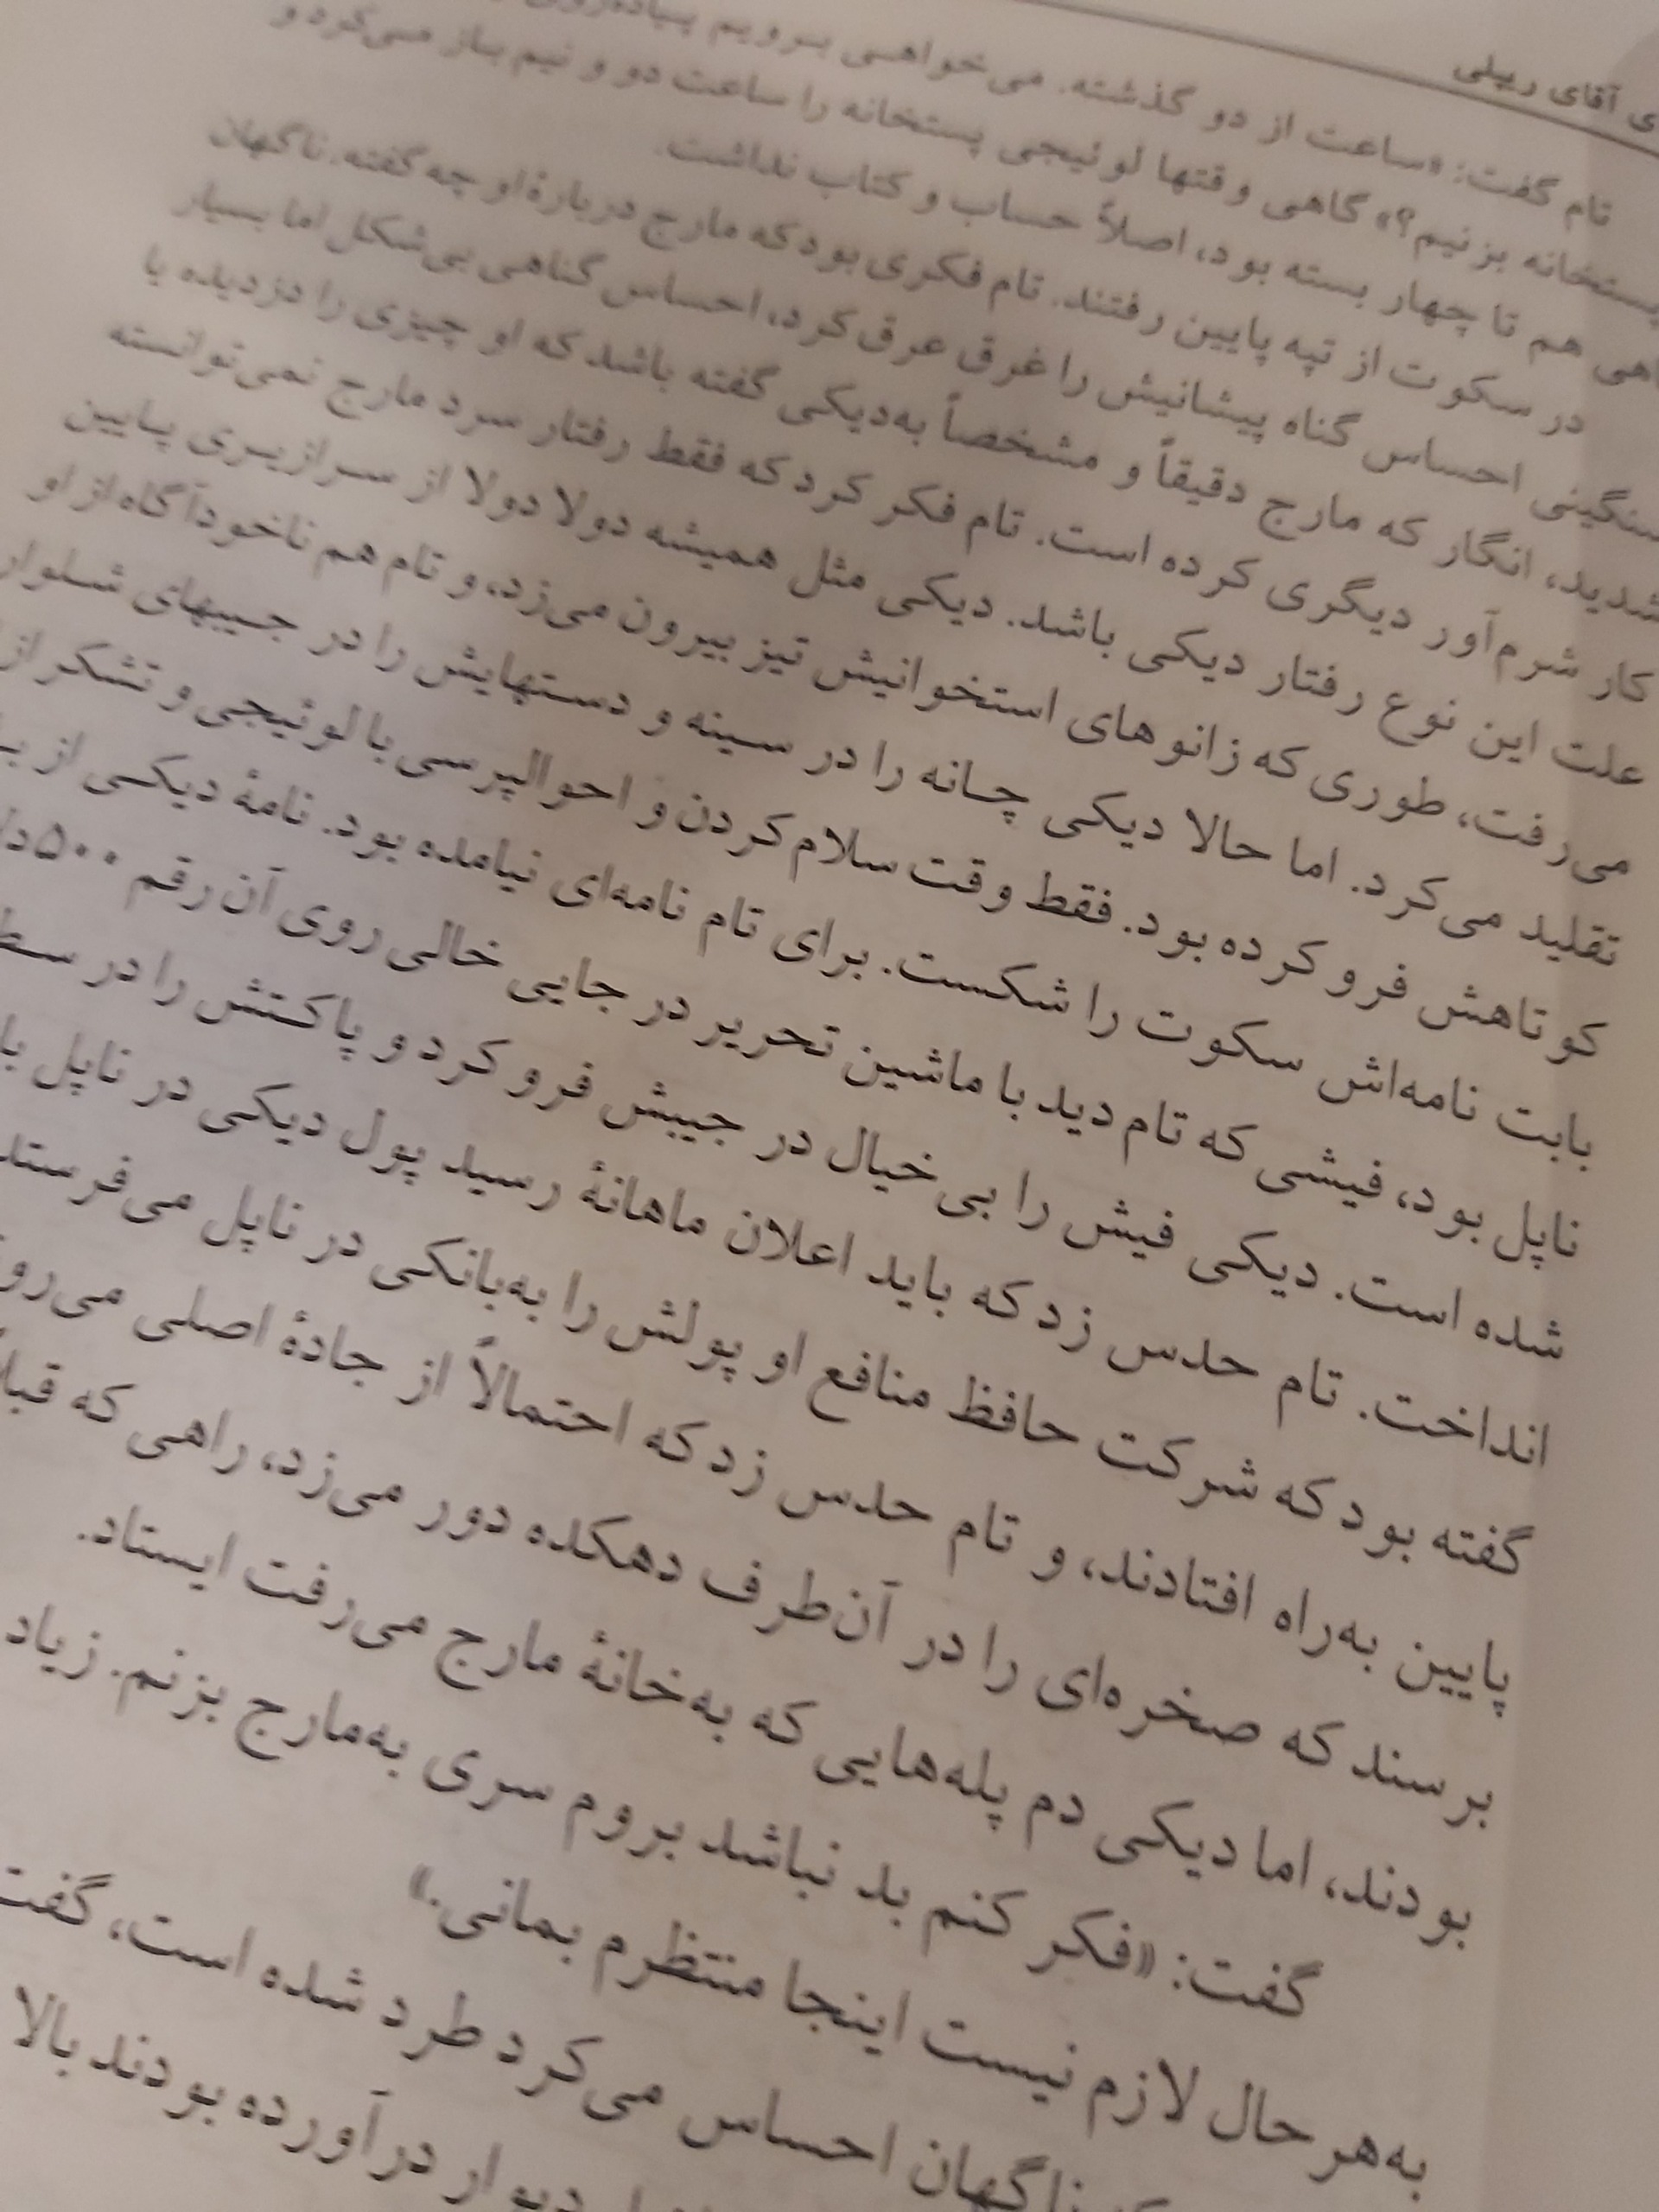 ی آقای ریپلی
تام گفت: «ساعت از دو گذشته. می‌خواهی برویم پیاده‌روی
پستخانه بزنیم؟» گاهی وقتها لوئیجی پستخانه را ساعت دو و نیم باز می‌کرد و
گاهی هم تا چهار بسته بود، اصلاً حساب و کتاب نداشت.
در سکوت از تپه پایین رفتند. تام فکری بود که مارج دربارهٔ او چه گفته. ناگهان
سنگینی احساس گناه پیشانیش را غرق عرق کرد، احساس گناهی بی‌شکل اما بسیار
شدید، انگار که مارج دقیقاً و مشخصاً به‌دیکی گفته باشد که او چیزی را دزدیده یا
کار شرم‌آور دیگری کرده است. تام فکر کرد که فقط رفتار سرد مارج نمی‌توانسته
علت این نوع رفتار دیکی باشد. دیکی مثل همیشه دولا دولا از سرازیری پایین
می‌رفت، طوری که زانوهای استخوانیش تیز بیرون می‌زد، و تام هم ناخودآگاه از او
تقلید می‌کرد. اما حالا دیکی چانه را در سینه و دستهایش را در جیبهای شلوار
کوتاهش فرو کرده بود. فقط وقت سلام کردن و احوالپرسی با لوئیجی و تشکر از
بابت نامه‌اش سکوت را شکست. برای تام نامه‌ای نیامده بود. نامهٔ دیکی از
ناپل بود، فیشی که تام دید با ماشین تحریر در جایی خالی روی آن رقم ۵۰۰
شده است. دیکی فیش را بی‌خیال در جیبش فرو کرد و پاکتش را در
انداخت. تام حدس زد که باید اعلان ماهانهٔ رسید پول دیکی در ناپل
گفته بود که شرکت حافظ منافع او پولش را به‌بانکی در ناپل می‌فرستد
پایین به‌راه افتادند، و تام حدس زد که احتمالاً از جادهٔ اصلی
برسند که صخره‌ای را در آن‌طرف دهکده دور می‌زد، راهی که قبلاً
بودند، اما دیکی دم پله‌هایی که به‌خانهٔ مارج می‌رفت ایستاد.
گفت: «فکر کنم بد نباشد بروم سری به‌مارج بزنم. زیاد
به‌هر حال لازم نیست اینجا منتظرم بمانی.»
ناگهان احساس می‌کرد طرد شده است، گفت
دیوار درآورده بودند بالا